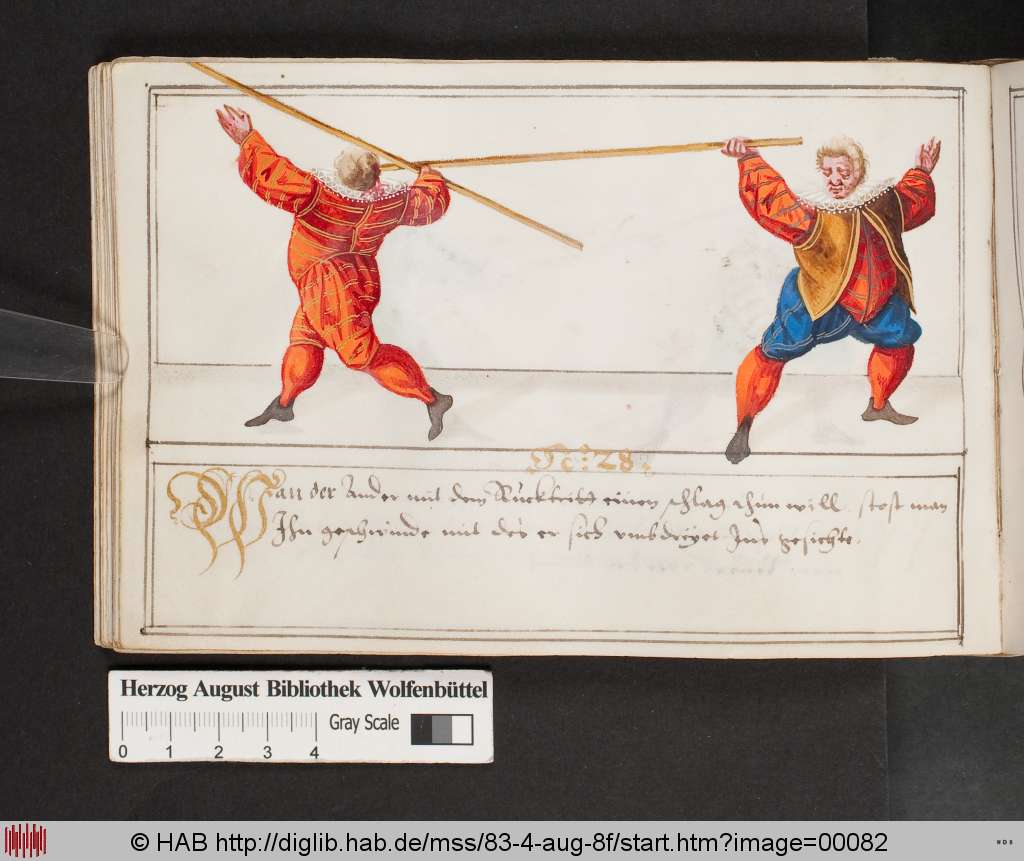 No: 28.
Wan der Ander mit dem Rücktritt einen schlag thun will, stost man
Ihn geschwinde mit des er sich umbdreyet Ins gesichte.
Herzog August Bibliothek Wolfenbüttel
Gray Scale
0 1 2 3 4
© HAB http://diglib.hab.de/mss/83-4-aug-8f/start.htm?image=00082
WDB